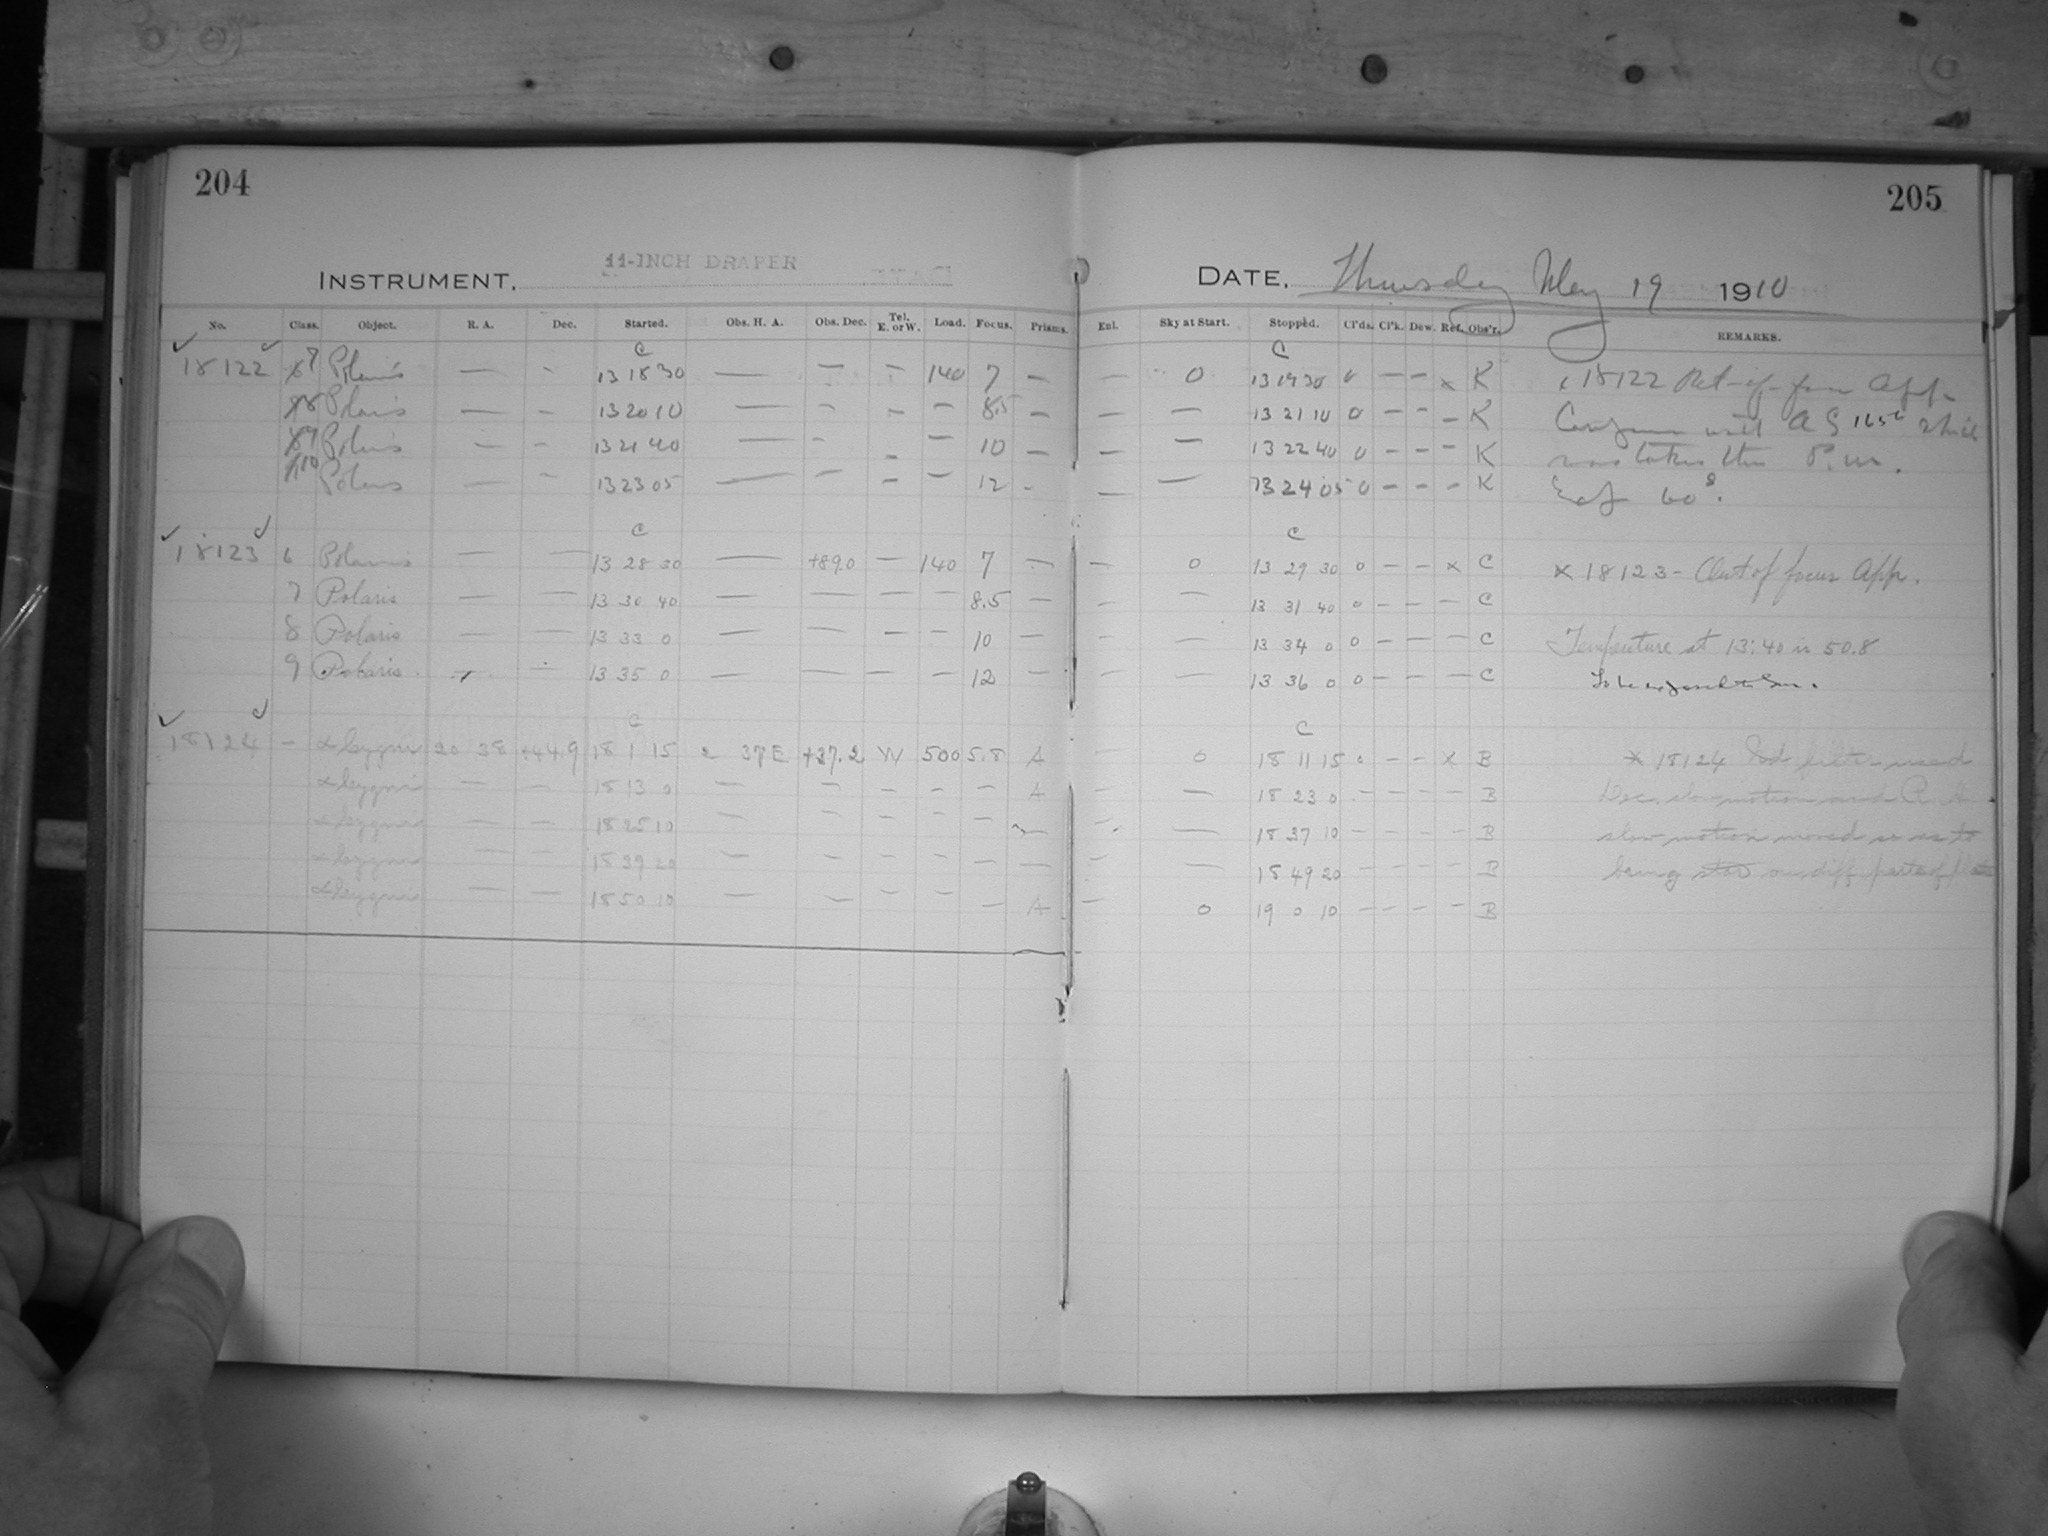 204
205
INSTRUMENT. 11-INCH DRAPER
DATE. Thursday May 19 1910
No. Class. Object. R. A. Dec. Started. Obs. H. A. Obs. Dec. Tel. E. or W. Load. Focus. Prisms. Enl. Sky at Start. Stopped. Cl'ds. Cl'k. Dew. Ref. Obs'r. REMARKS.
C C
18122 7 Polaris — - 13 18 30 — — — 140 7 — — 0 13 19 30 0 — — x K 18122 Out-of-focus App.
8 Polaris — — 13 20 10 — - - — 8.5 — — — 13 21 10 0 — — — K Compare with A G which
9 Polaris — — 13 21 40 — - — — 10 — — — 13 22 40 0 - - - K was taken this P.m.
10 Polaris — - 13 23 05 — — — - 12 - — — 13 24 05 0 — - - K 60s.
C C
18123 6 Polaris — — 13 28 30 — +89.0 — 140 7 — — 0 13 29 30 0 — — x C x 18123 - Out of focus App.
7 Polaris — — 13 30 40 — — — — 8.5 — — — 13 31 40 0 — — — C
8 Polaris — — 13 33 0 — — — — 10 — — — 13 34 0 0 — — — C Temperture at 13:40 is 50.8
9 Polaris — 13 35 0 — — — — 12 — — — 13 36 0 0 — — — C To be
C C
18124 — α Cygni 20 38 +44.9 18 1 15 2 37 E +37.2 W 500 5.8 A — 0 18 11 15 0 — — x B x 18124 Red filter used
α Cygni — — 18 13 0 — — — — — A — — 18 23 0 — — — — B Dec. slow motion and R. A.
α Cygni — — 18 25 10 — — — — — — — — 18 37 10 — — — — B slow motion moved so as to
α Cygni — — 18 39 20 — — — — — — — — 18 49 20 — — — — B bring star on diff. parts of plate
α Cygni — — 18 50 10 — — — — — A — 0 19 0 10 — — — — B